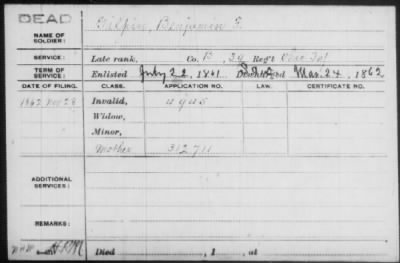 DEAD
NAME OF SOLDIER: Gilpin, Benjamin F.
SERVICE: Late rank, Co. B, 39 Reg't Ohio Inf
TERM OF SERVICE: Enlisted July 22, 1861 Died Mar. 24, 1862
DATE OF FILING. CLASS. APPLICATION NO. LAW. CERTIFICATE NO.
1862 Nov 28 Invalid,
Widow,
Minor,
Mother 312.711
ADDITIONAL SERVICES:
REMARKS:
Died , 1 , at